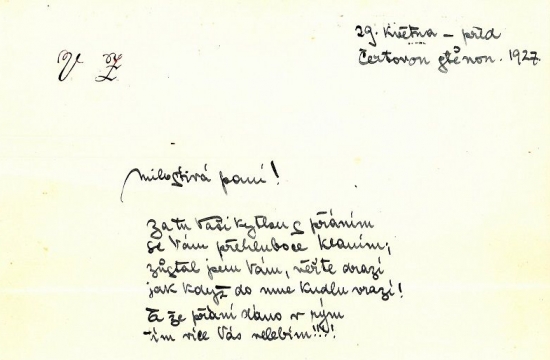 29. května – před
Čertovou stěnou. 1927.
V Z
Milostivá paní!
Za tu Vaši kytkou s přáním
se Vám přehluboce klaním,
zůstal jsem Vám, věřte drazí
jak když do mne kudlu vrazí!
A že přání dáno v rým
tím více Vás velebím!!!!